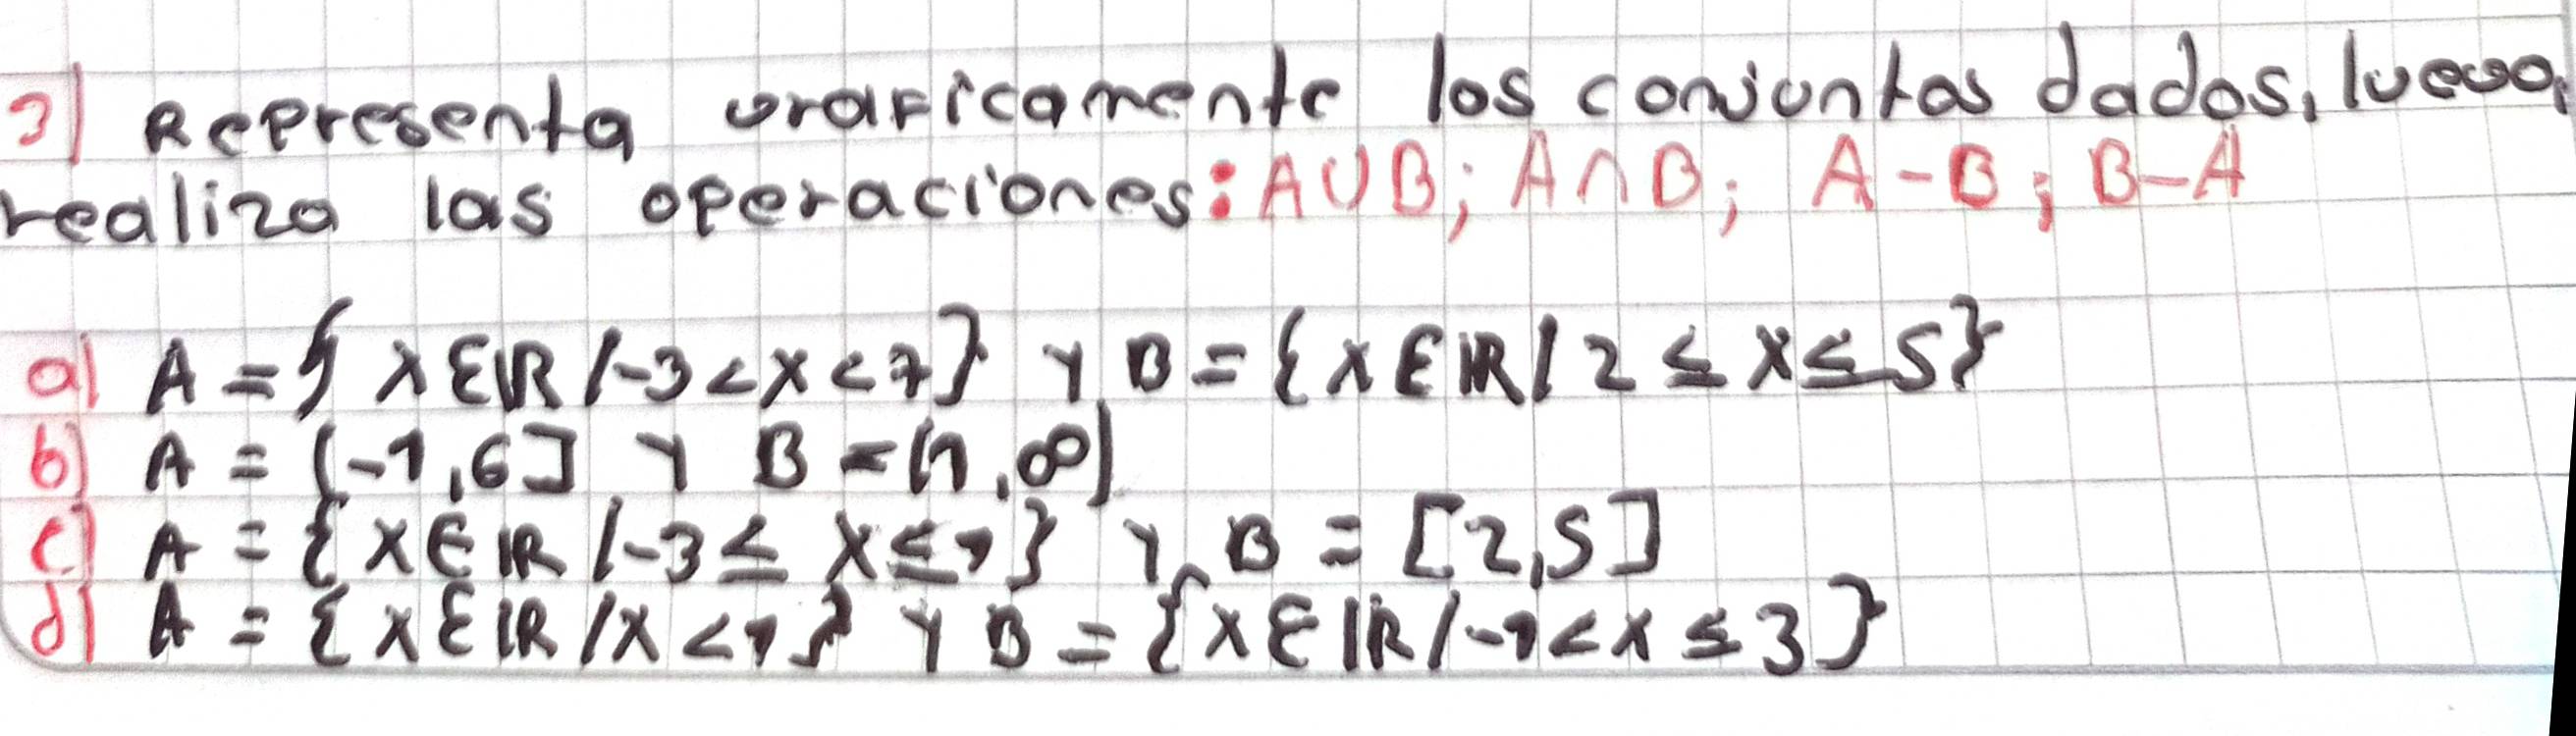 3) Representa graficamente los conjuntos dados, luego,
realiza las operaciones: A∪B; A∩B; A-B; B-A
a) A = { x∈ℝ /-3 < x < 7} Y B = {x∈ℝ / 2 ≤ x ≤ 5}
b) A = (-1,6] Y B = (1,∞)
c) A = {x∈ℝ /-3 ≤ x ≤ 1} Y B = [2,5]
d) A = {x∈ℝ /x < 1} Y B = {x∈ℝ /-1 < x ≤ 3}